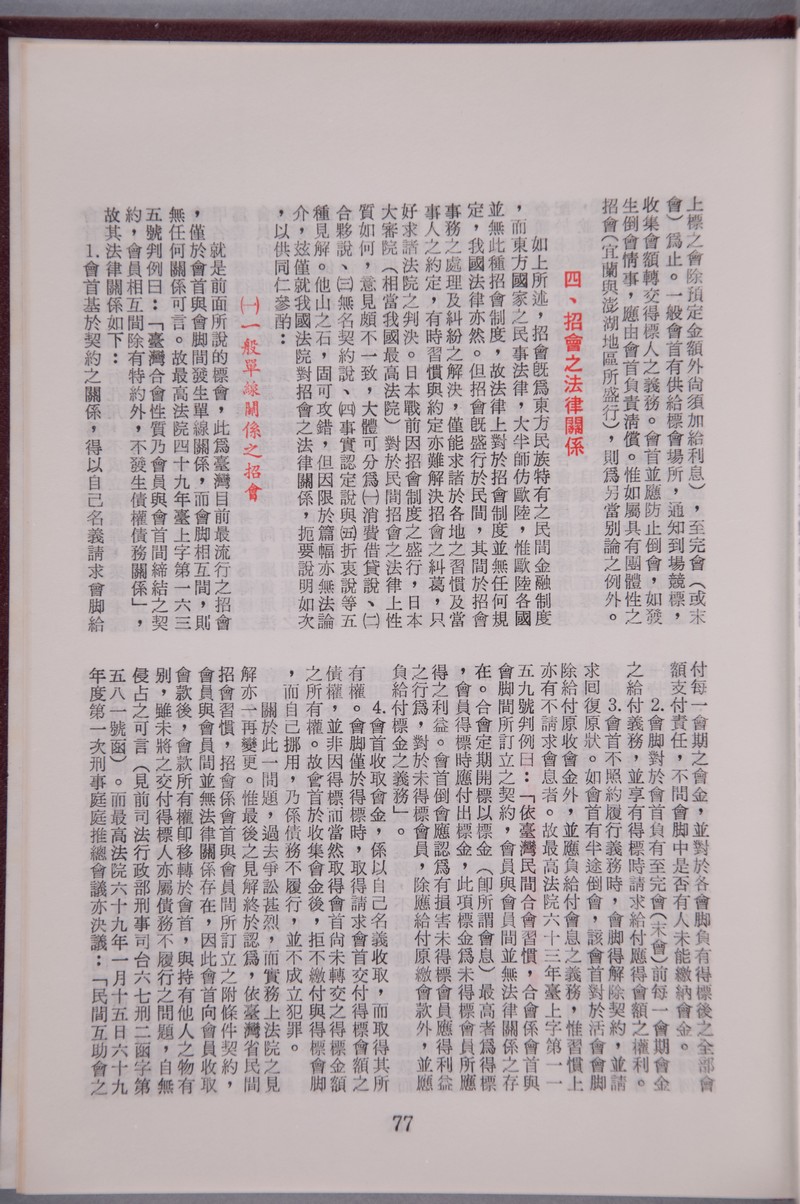 上標之會除預定金額外尙須加給利息），至完會（或末
會）爲止。一般會首有供給標會場所，通知到場競標，
收集會額轉交得標人之義務。會首並應防止倒會，如發
生倒會情事，應由會首負責淸償。惟如屬具有團體性之
招會（宜蘭與澎湖地區所盛行），則爲另當別論之例外。
四、招會之法律關係
如上所述，招會旣爲東方民族特有之民間金融制度
，而東方國家之民事法律，大半師仿歐陸，惟歐陸各國
並無此種招會制度，故法律上對於招會制度並無任何規
定，我國法律亦然。但招會旣盛行於民間，其間於招會
事務之處理及糾紛之解決，僅能求諸於各地之習慣及當
事人之約定，有時習慣與約定亦難解決招會之糾葛，只
好求諸法院之判決。日本戰前因招會制度之盛行，日本
大審院（相當我國最高法院）對於民間招會之法律上性
質如何，意見頗不一致，大體可分爲㈠消費借貸說、㈡
合夥說、㈢無名契約說、㈣事實認定說與㈤折衷說等五
種見解。他山之石，固可攻錯，但因限於篇幅亦無法論
介，玆僅就我國法院對招會之法律關係，扼要說明如次
，以供同仁參酌：
㈠一般單線關係之招會
就是前面所說的標會，此爲臺灣目前最流行之招會
，僅於會首與會脚間發生單線關係，而會脚相互間，則
無任何關係可言。故最高法院四十九年臺上字第一六三
五號判例曰：「臺灣合會性質乃會員與會首間締結之契
約，會員相互間除有特約外，不發生債權債務關係」，
故其法律關係如下：
1.會首基於契約之關係，得以自己名義請求會脚給
付每一會期之會金，並對於各會脚負有得標後之全部會
額支付責任，不問會脚中是否有人未能繳納會金。
2.會脚對於會首負有至完會（末會）前每一會期會金
之給付義務，並享有得標時請求給付應得會額之權利。
3.會首不照約履行義務時，會脚得解除契約，並請
求回復原狀。如會首有半途倒會，該會首對於活會會脚
除給付原收會金外，並應負給付會息之義務，惟習慣上
亦有不請求會息者。故最高法院六十三年臺上字第一一
五九號判例曰：「依臺灣民間合會習慣，合會係會首與
會脚間所訂立之契約，會員與會員間並無法律關係之存
在。合會定期開標以標金（卽所謂會息）最高者爲得標
，會員得標時應付出標金，此項標金爲未得標會員所應
得之利益。會首倒會應認爲有損害未得標會員應得利益
之行爲，對於未得標會員，除應給付原繳會款外，並應
負給付標金之義務」。
4.會首收取會金，係以自己名義收取，而取得其所
有權。會脚僅於得標時，取得請求會首交付得標會額之
債權，並非因得標而當然取得會首尙未轉交之得標金額
之所有權。故會首於收集會金後，拒不繳付與得標會脚
，而自己挪用，乃係債務不履行，並不成立犯罪。
關於此一問題，過去爭訟甚烈，而實務上法院之見
解亦一再變更。惟最後之見解終於認爲，依臺灣省民間
招會習慣，招會係會首與會員間所訂立之附條件契約，
會員與會員間並無法律關係存在，因此會首向會員收取
會款後，會款所有權卽移轉於會首，與持有他人之物有
別，雖未將之交付得標人亦屬債務不履行之問題，自無
侵占之可言（見前司法行政部刑事司台六七刑二函字第
五八一號函）。而最高法院六十九年一月十五日六十九
年度第一次刑事庭庭推總會議亦決議：「民間互助會之
77